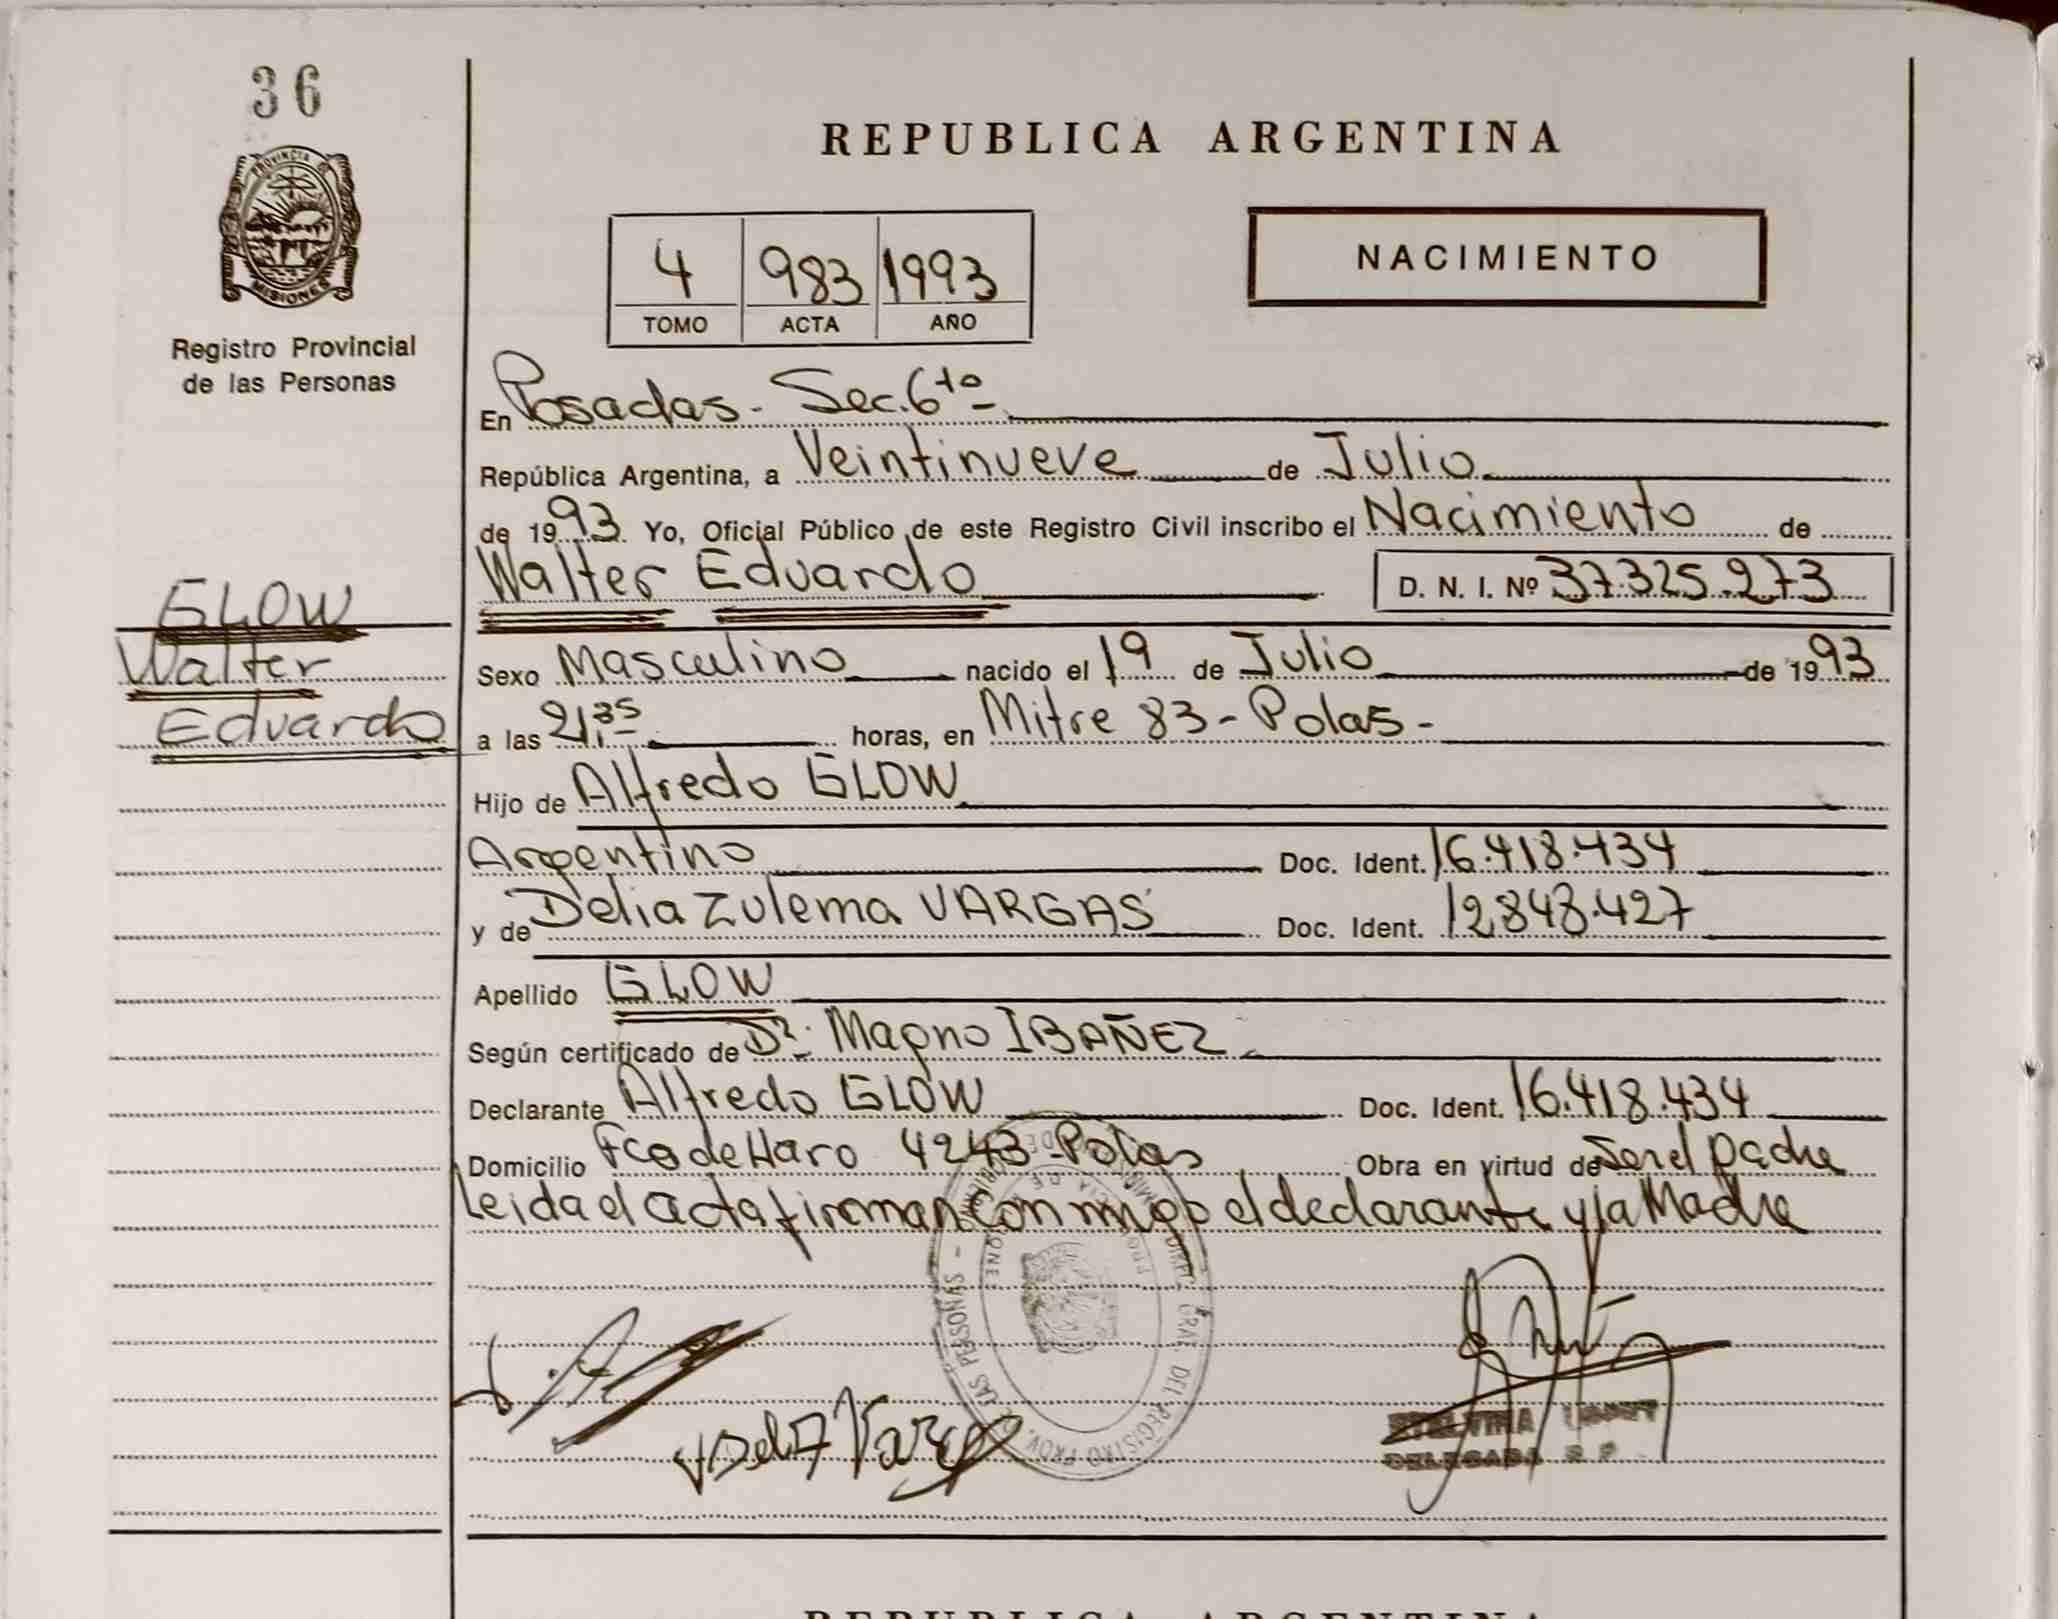 36
PROVINCIA DE
MISIONES
Registro Provincial
de las Personas
REPUBLICA ARGENTINA
4 983 1993
TOMO ACTA AÑO
NACIMIENTO
En Posadas - Sec. 6ta
República Argentina, a Veintinueve de Julio
de 1993 Yo, Oficial Público de este Registro Civil inscribo el Nacimiento de
Walter Eduardo D. N. I. Nº 37.325.273
GLOW
Walter
Eduardo
Sexo Masculino nacido el 19 de Julio de 1993
a las 21,35 horas, en Mitre 83 - Pdas -
Hijo de Alfredo GLOW
Argentino Doc. Ident. 16.418.434
y de Delia Zulema VARGAS Doc. Ident. 12.848.427
Apellido GLOW
Según certificado de Dr. Magno IBAÑEZ
Declarante Alfredo GLOW Doc. Ident. 16.418.434
Domicilio Fco de Haro 4243 - Pdas Obra en virtud de Ser el padre
Leida el acta firman conmigo el declarante y la Madre
DELEGADA
REPUBLICA ARGENTINA